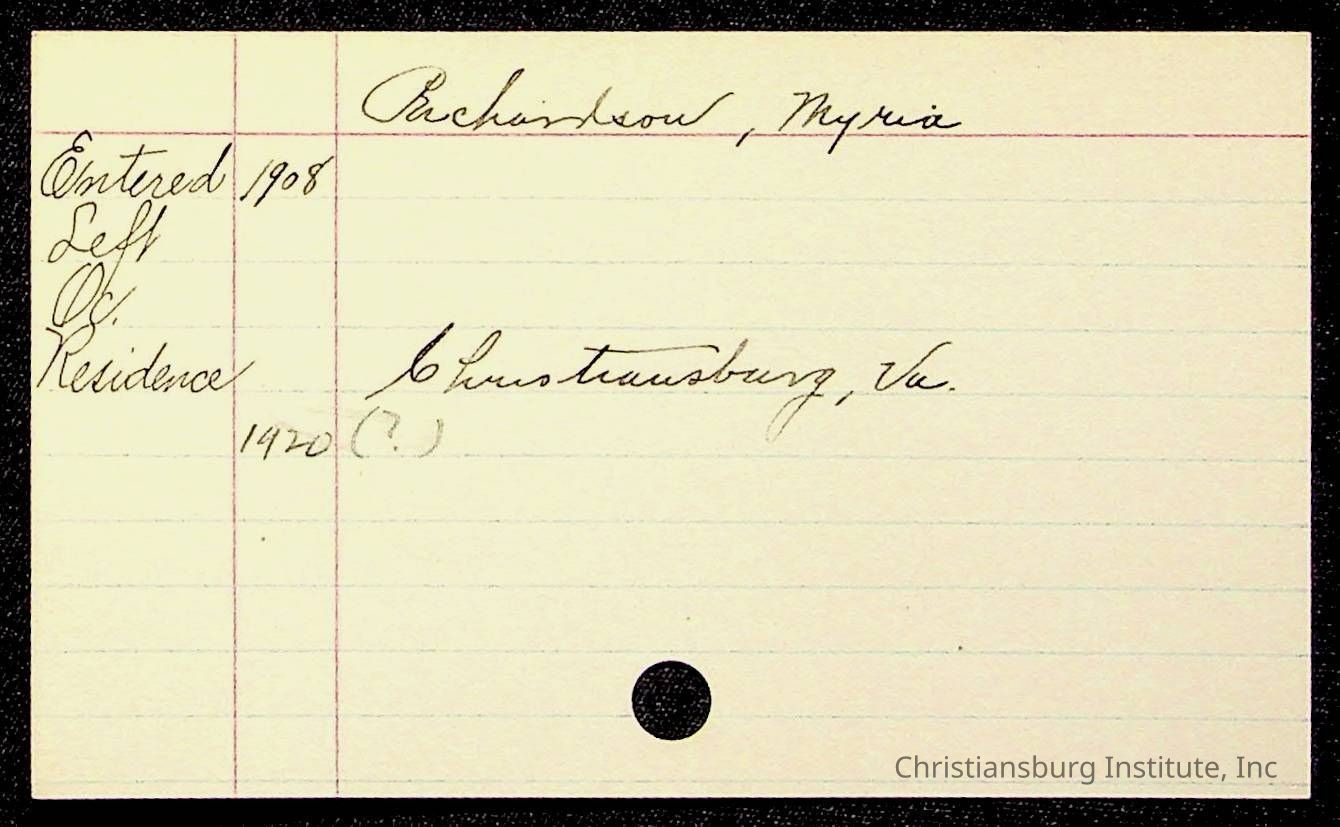 Richardson, Myria
Entered 1908
Left
Oc.
Residence Christiansburg, Va.
1920 (?)
Christiansburg Institute, Inc